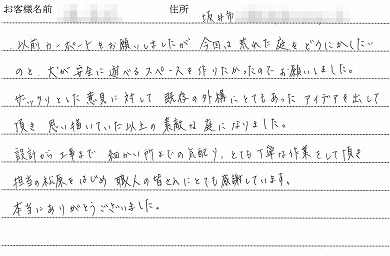 お客様名前 住所 坂井市
以前カーポートをお願いしましたが 今回は荒れた庭をどうにかしたい
のと、犬が安全に遊べるスペースを作りたかったのでお願いしました。
ザックリとした意見に対して 既存の外構にとてもあった アイデアを出して
頂き 思い描いていた以上の素敵な庭になりました。
設計から工事まで 細かい所までの気配り、とても丁寧な作業をして頂き
担当の松原をはじめ 職人の皆さんにとても感謝しています。
本当にありがとうございました。